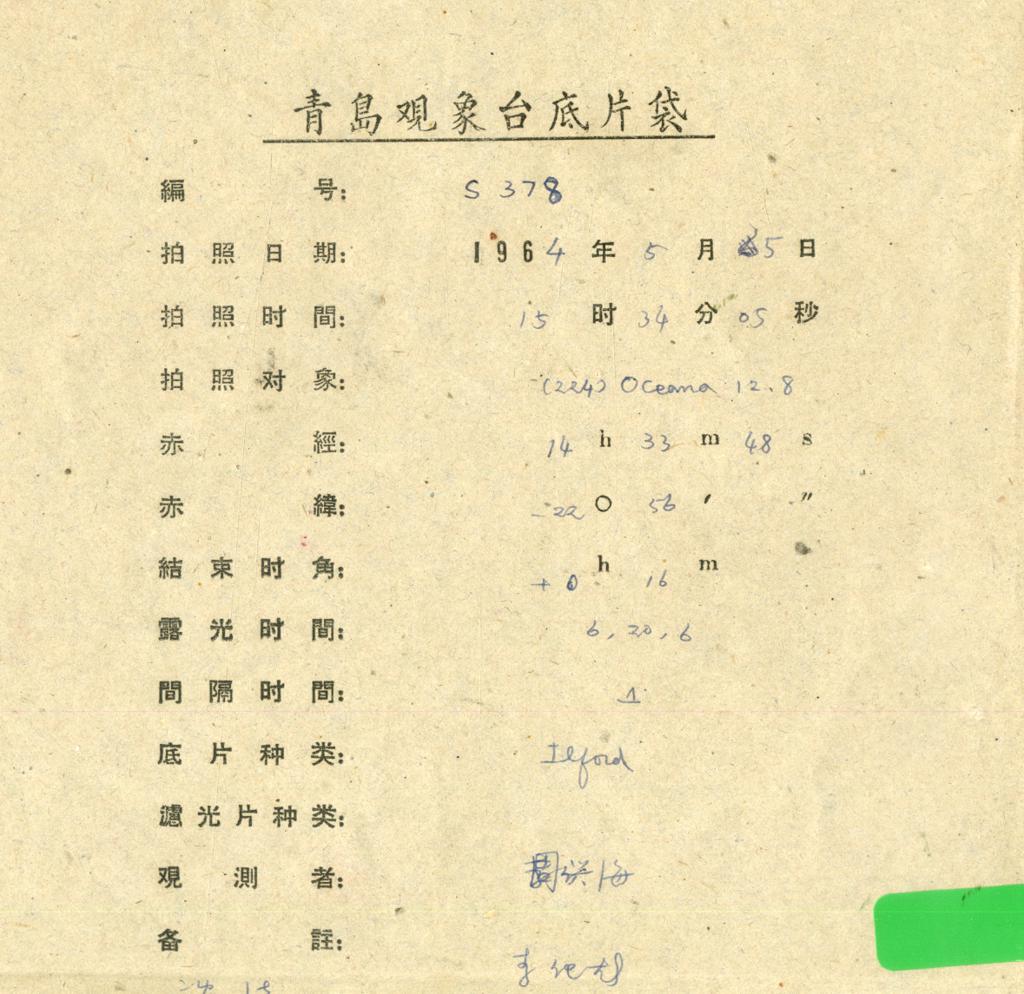 青島观象台底片袋
編号: S 378
拍照日期: 1964年5月5日
拍照时間: 15时34分05秒
拍照对象: (224) Oceana 12.8
赤經: 14h 33m 48s
赤緯: -22O 56′ ″
結束时角: +0h 16m
露光时間: 6, 20, 6
間隔时間: 1
底片种类: Ilford
濾光片种类:
观測者: 海
备註:
李